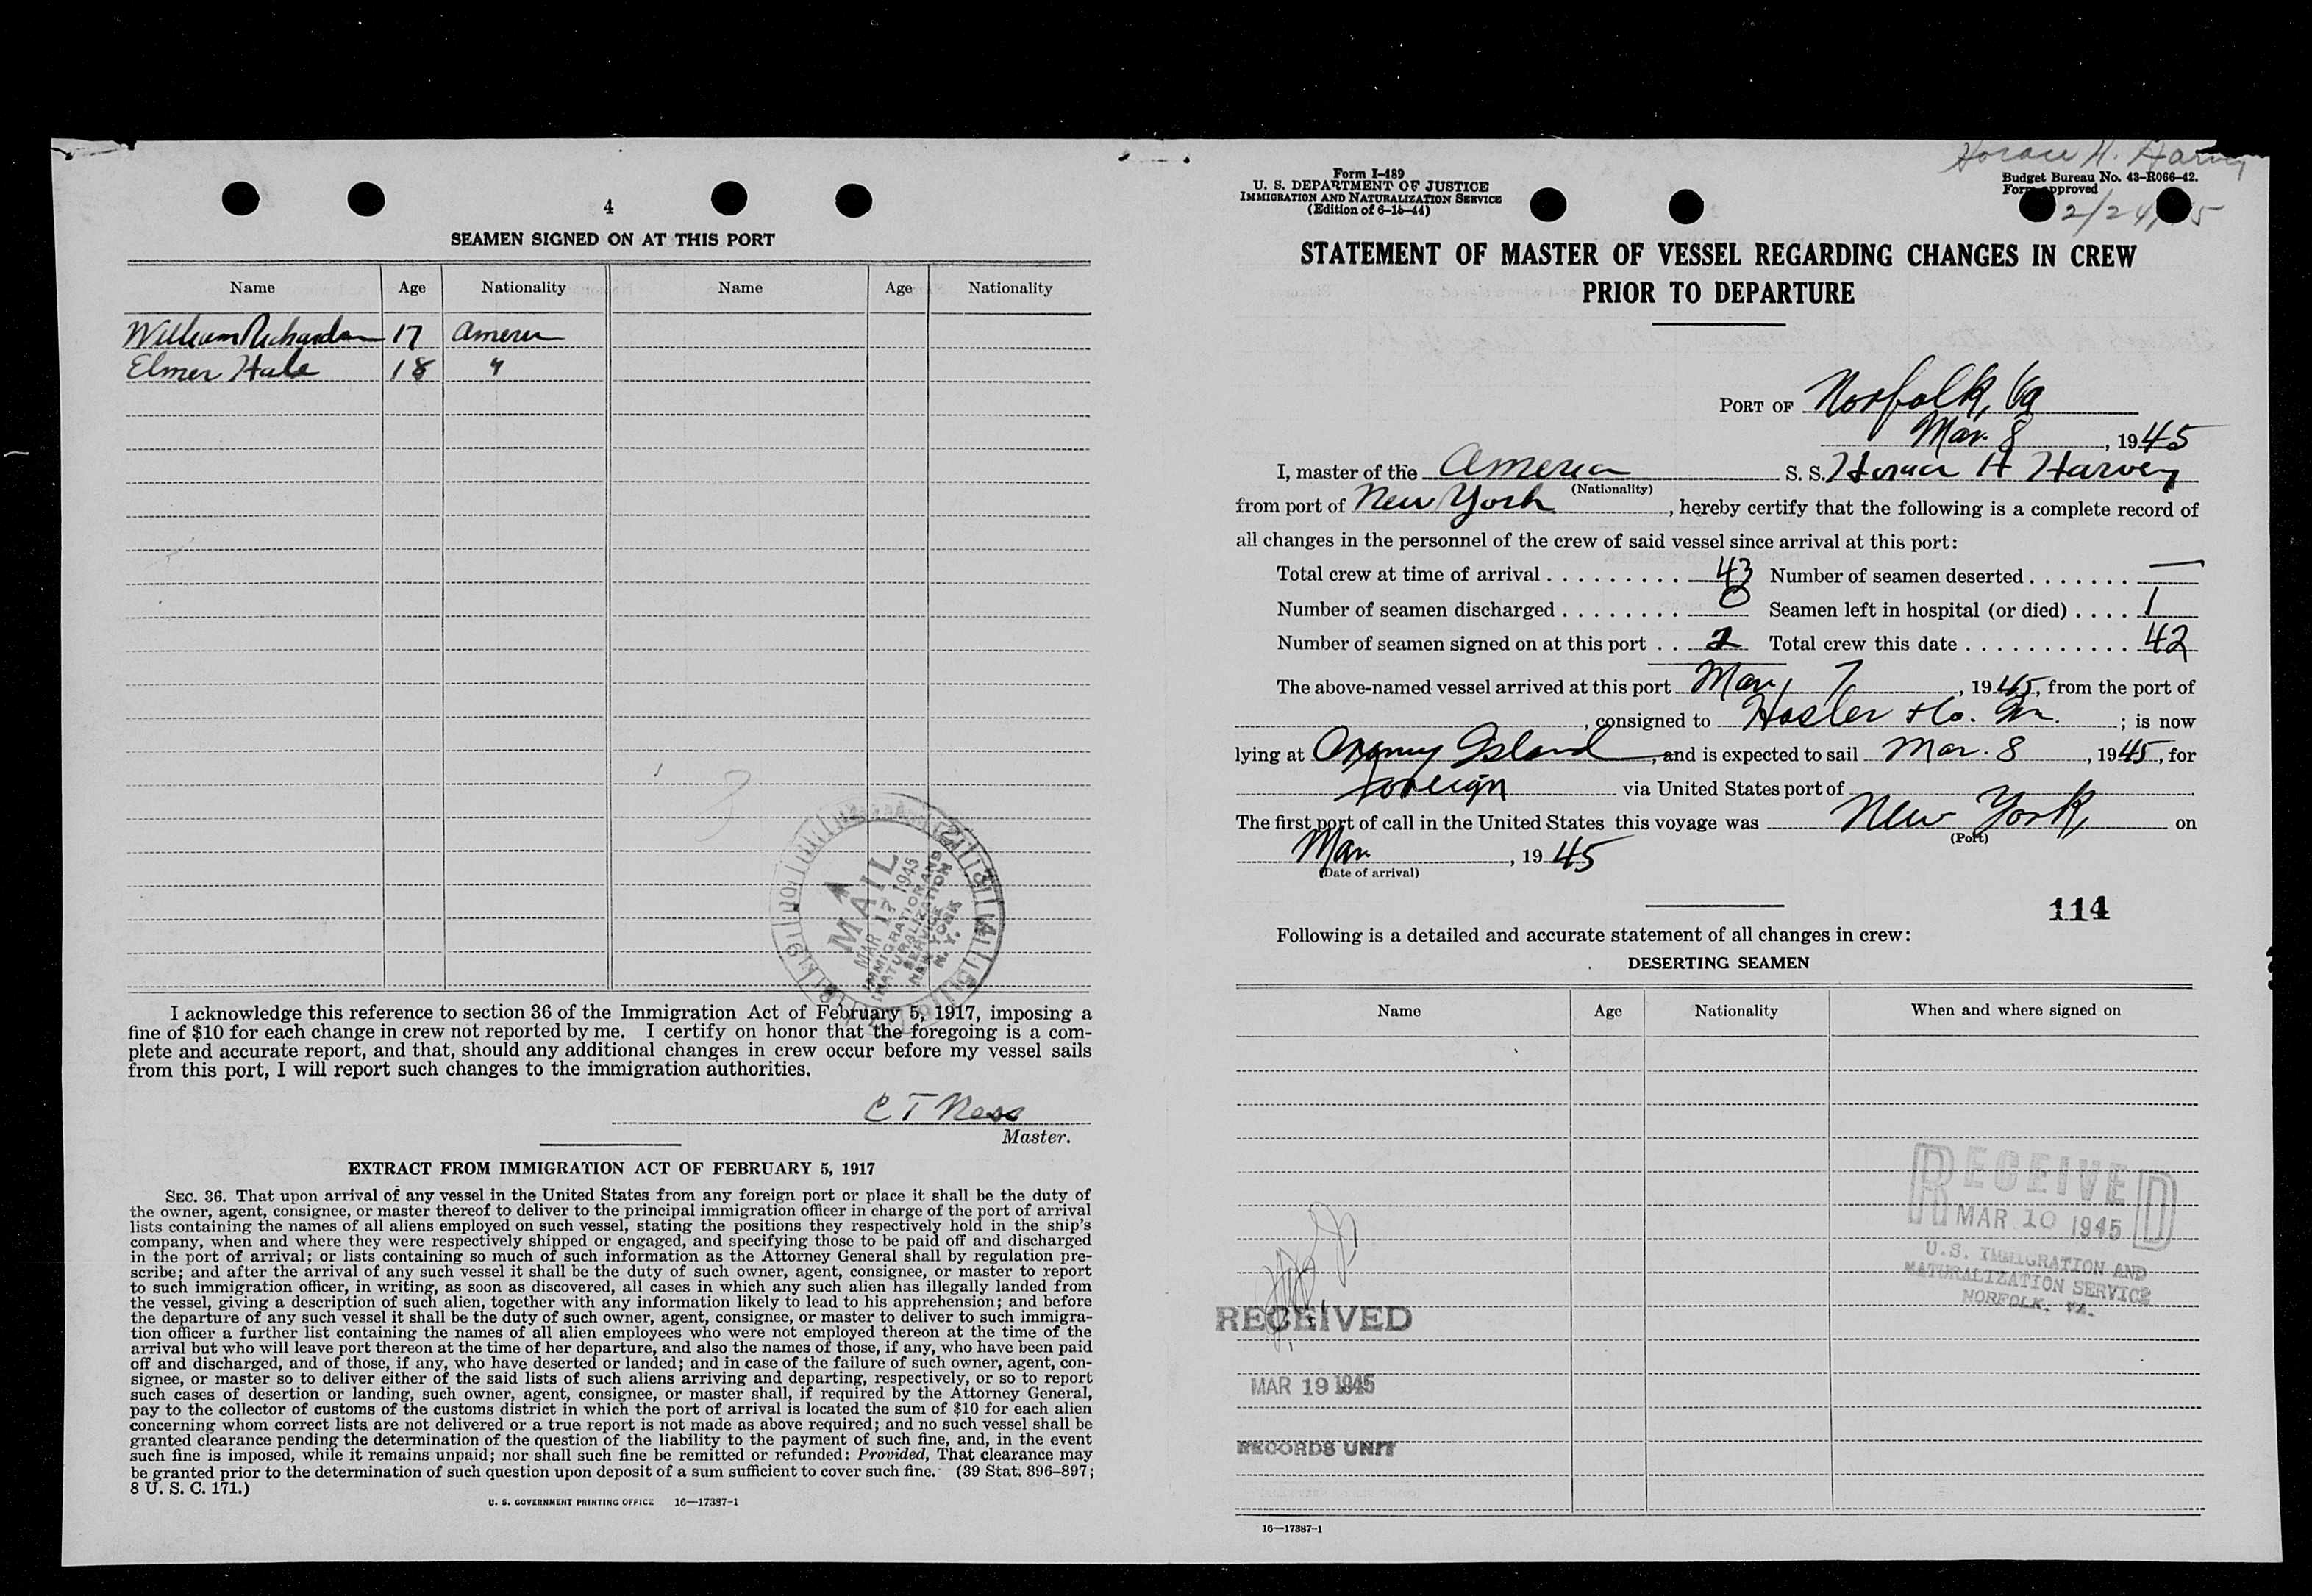 4
SEAMEN SIGNED ON AT THIS PORT
Name Age Nationality Name Age Nationality
William Richardson 17 America
Elmer Hale 18 "
MAIL
MAR 17 1945
IMMIGRATION AND
NATURALIZATION
SERVICE
NEW YORK
N. Y.
I acknowledge this reference to section 36 of the Immigration Act of February 5, 1917, imposing a
fine of $10 for each change in crew not reported by me. I certify on honor that the foregoing is a com-
plete and accurate report, and that, should any additional changes in crew occur before my vessel sails
from this port, I will report such changes to the immigration authorities.
C T Ness
Master.
EXTRACT FROM IMMIGRATION ACT OF FEBRUARY 5, 1917
SEC. 36. That upon arrival of any vessel in the United States from any foreign port or place it shall be the duty of
the owner, agent, consignee, or master thereof to deliver to the principal immigration officer in charge of the port of arrival
lists containing the names of all aliens employed on such vessel, stating the positions they respectively hold in the ship's
company, when and where they were respectively shipped or engaged, and specifying those to be paid off and discharged
in the port of arrival; or lists containing so much of such information as the Attorney General shall by regulation pre-
scribe; and after the arrival of any such vessel it shall be the duty of such owner, agent, consignee, or master to report
to such immigration officer, in writing, as soon as discovered, all cases in which any such alien has illegally landed from
the vessel, giving a description of such alien, together with any information likely to lead to his apprehension; and before
the departure of any such vessel it shall be the duty of such owner, agent, consignee, or master to deliver to such immigra-
tion officer a further list containing the names of all alien employees who were not employed thereon at the time of the
arrival but who will leave port thereon at the time of her departure, and also the names of those, if any, who have been paid
off and discharged, and of those, if any, who have deserted or landed; and in case of the failure of such owner, agent, con-
signee, or master so to deliver either of the said lists of such aliens arriving and departing, respectively, or so to report
such cases of desertion or landing, such owner, agent, consignee, or master shall, if required by the Attorney General,
pay to the collector of customs of the customs district in which the port of arrival is located the sum of $10 for each alien
concerning whom correct lists are not delivered or a true report is not made as above required; and no such vessel shall be
granted clearance pending the determination of the question of the liability to the payment of such fine, and, in the event
such fine is imposed, while it remains unpaid; nor shall such fine be remitted or refunded: Provided, That clearance may
be granted prior to the determination of such question upon deposit of a sum sufficient to cover such fine. (39 Stat. 896–897;
8 U. S. C. 171.)
U. S. GOVERNMENT PRINTING OFFICE 16—17387-1
Horace H. Harvey
Form I-489
U. S. DEPARTMENT OF JUSTICE
IMMIGRATION AND NATURALIZATION SERVICE
(Edition of 6-15-44)
Budget Bureau No. 43-R066-42.
Form approved
2/24/ 5
STATEMENT OF MASTER OF VESSEL REGARDING CHANGES IN CREW
PRIOR TO DEPARTURE
PORT OF Norfolk, Va
Mar. 8, 1945
I, master of the America S. S. Horace H Harvey
(Nationality)
from port of New York, hereby certify that the following is a complete record of
all changes in the personnel of the crew of said vessel since arrival at this port:
Total crew at time of arrival . . . . . . . . . 43 Number of seamen deserted . . . . . . . —
Number of seamen discharged . . . . . . . . 0 Seamen left in hospital (or died) . . . . 1
Number of seamen signed on at this port . . 2 Total crew this date . . . . . . . . . . . . 42
The above-named vessel arrived at this port Mar, 7, 1945, from the port of
, consigned to Hasler & Co. ; is now
lying at Craney Island, and is expected to sail Mar. 8, 1945, for
foreign via United States port of
The first port of call in the United States this voyage was New York, on
(Port)
Mar, 1945
(Date of arrival)
114
Following is a detailed and accurate statement of all changes in crew:
DESERTING SEAMEN
Name Age Nationality When and where signed on
RECEIVED
MAR 10 1945
U.S. IMMIGRATION AND
NATURALIZATION SERVICE
NORFOLK, VA.
RECEIVED
MAR 19 1945
RECORDS UNIT
16—17387-1